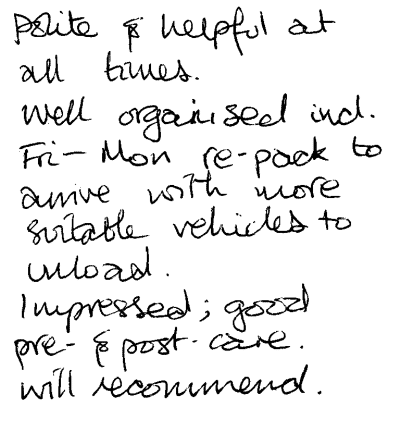 Polite & helpful at
all times.
Well organised incl.
Fri-Mon re-pack to
arrive with more
suitable vehicles to
unload.
Impressed; good
pre- & post-care.
will recommend.